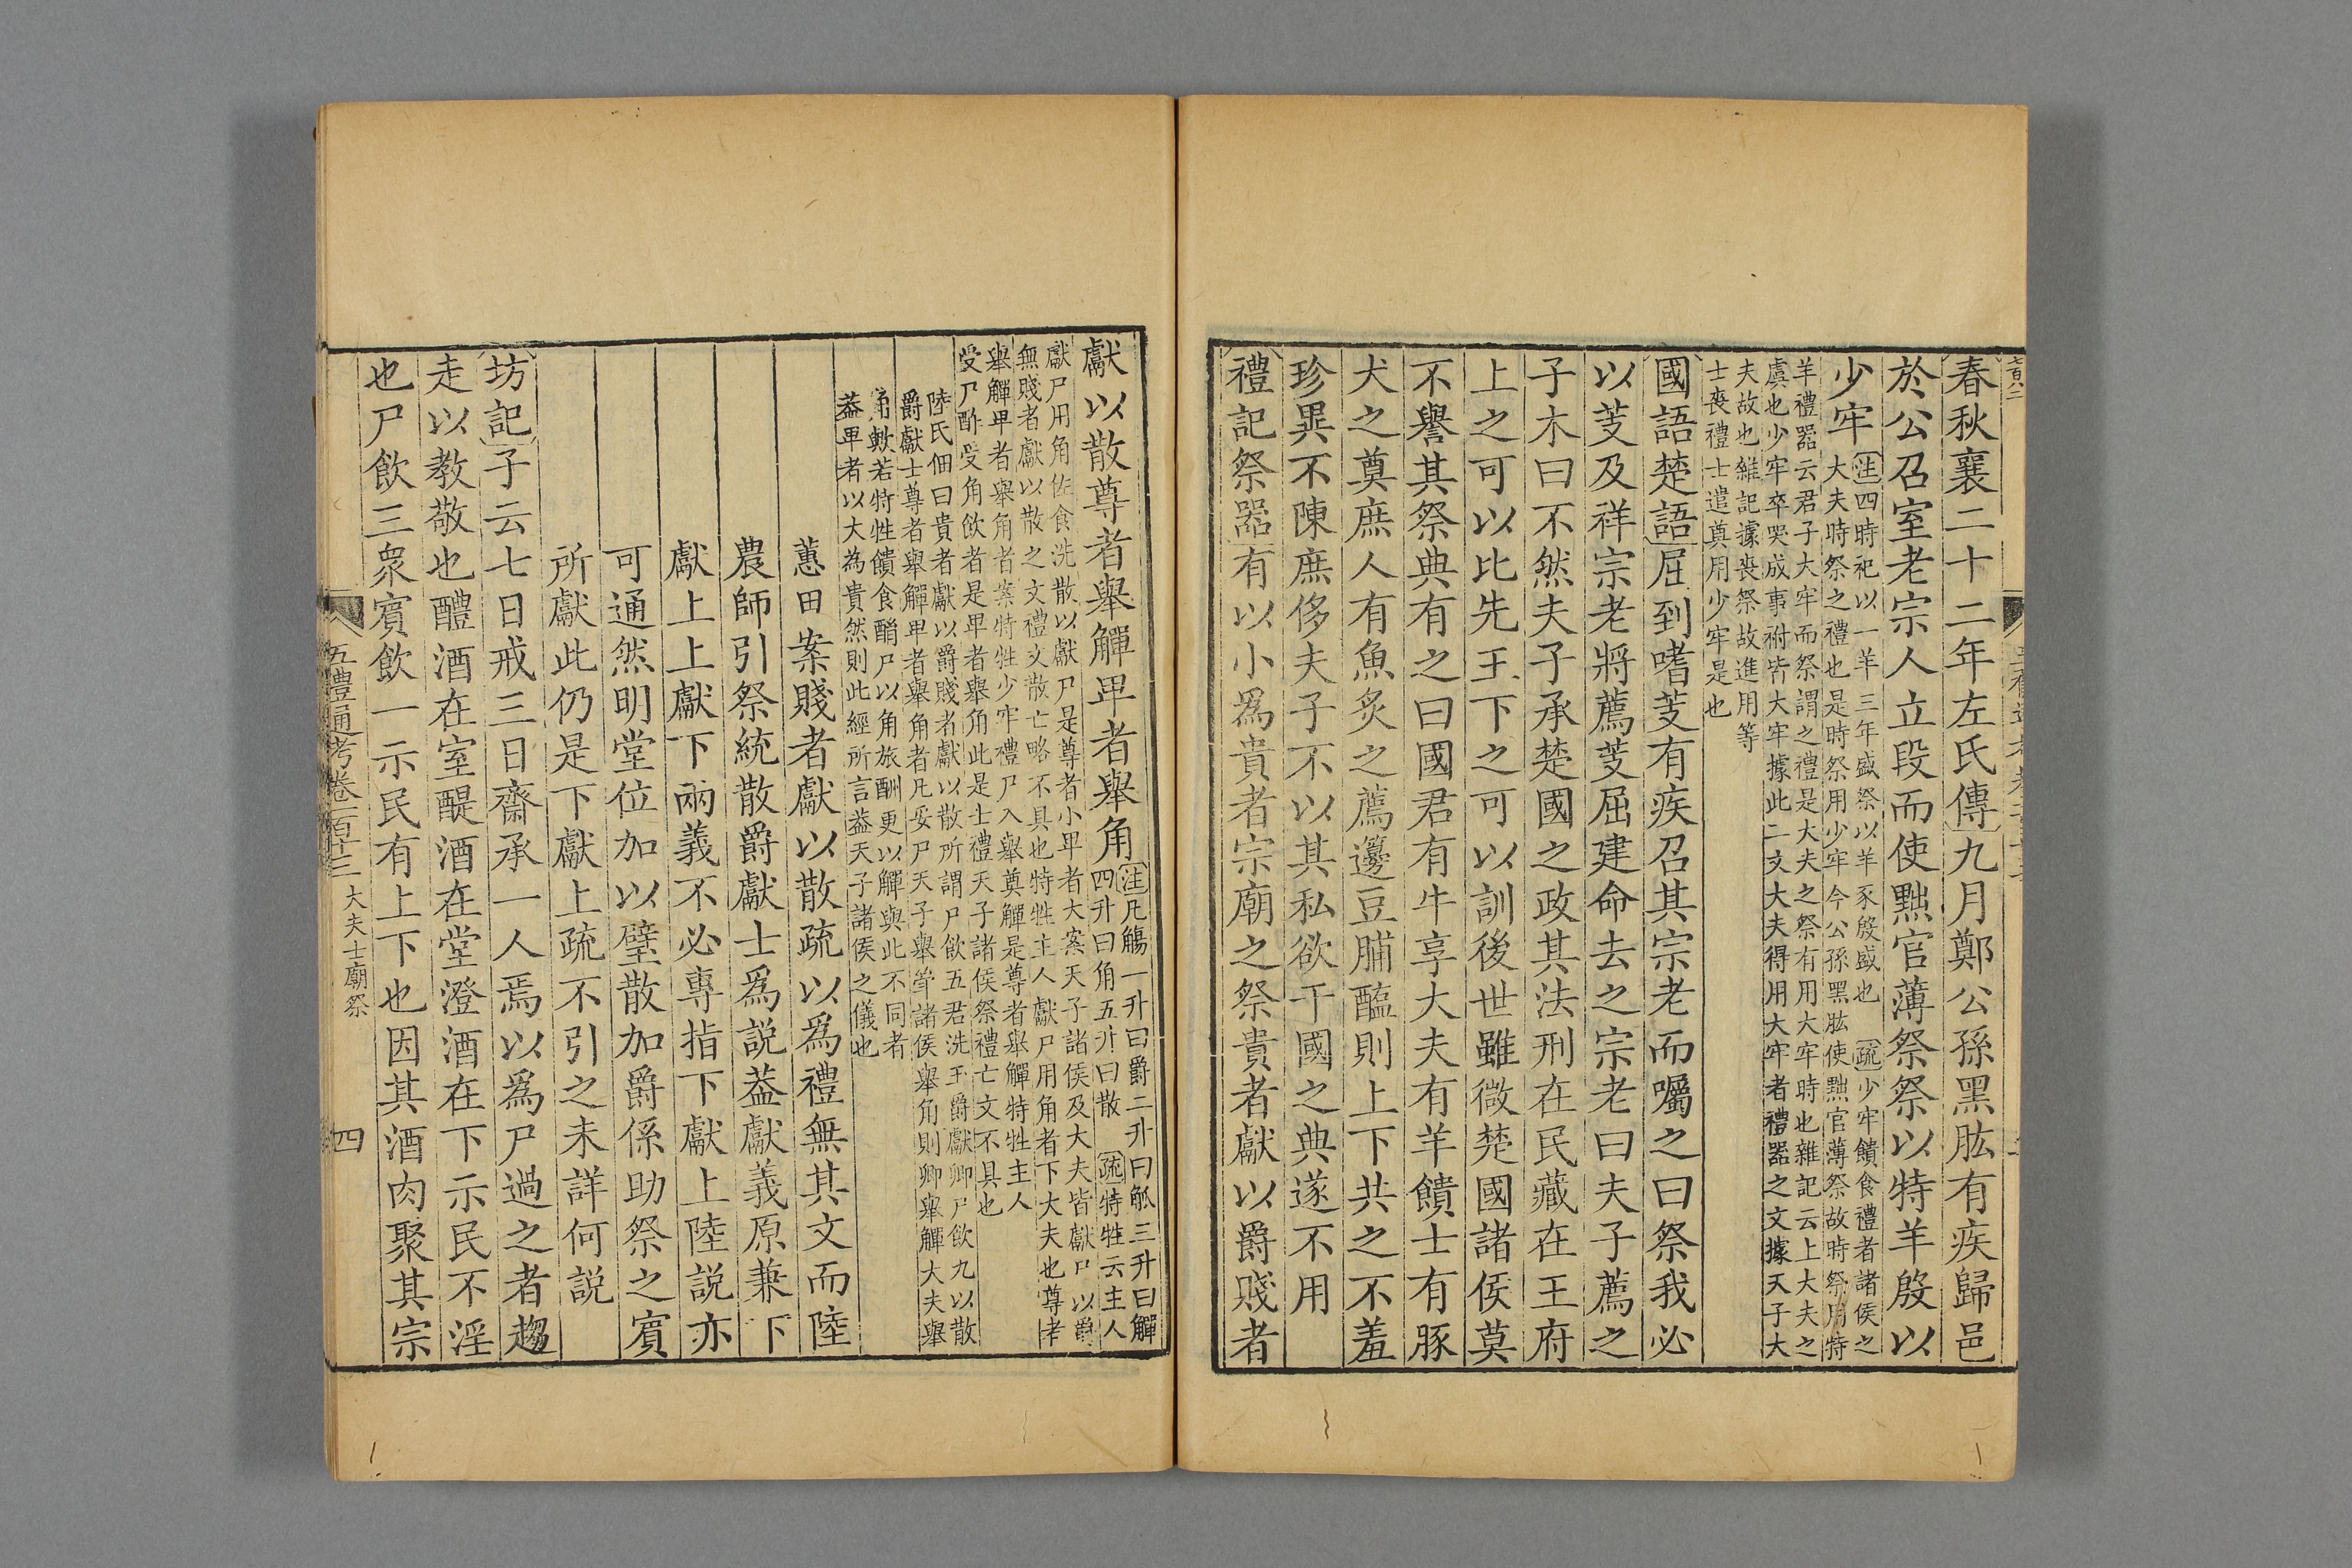 春秋襄二十二年左氏傳九月鄭公孫黑肱有疾歸邑
於公召室老宗人立段而使黜官薄祭祭以特羊殷以
少牢
注四時祀以一羊三年盛祭以羊豕殷盛也 疏少牢饋食禮者諸侯之
大夫時祭之禮也是時祭用少牢今公孫黑肱使黜官薄祭故時祭用特
羊禮器云君子大牢而祭謂之禮是大夫之祭有用大牢時也雜記云上大夫之
虞也少牢卒哭成事祔皆大牢據此二文大夫得用大牢者禮器之文據天子大
夫故也雜記據喪祭故進用等
士喪禮士遣奠用少牢是也
國語楚語屈到嗜芰有疾召其宗老而囑之曰祭我必
以芰及祥宗老將薦芰屈建命去之宗老曰夫子薦之
子木曰不然夫子承楚國之政其法刑在民藏在王府
上之可以比先王下之可以訓後世雖微楚國諸侯莫
不譽其祭典有之曰國君有牛享大夫有羊饋士有豚
犬之奠庶人有魚炙之薦籩豆脯醢則上下共之不羞
珍異不陳庶侈夫子不以其私欲干國之典遂不用
禮記祭器有以小爲貴者宗廟之祭貴者獻以爵賤者
獻以散尊者舉觶卑者舉角
注凡觴一升曰爵二升曰觚三升曰觶
四升曰角五升曰散 疏特牲云主人
獻尸用角佐食洗散以獻尸是尊者小卑者大案天子諸侯及大夫皆獻尸以爵
無賤者獻以散之文禮文散亡略不具也特牲主人獻尸用角者下大夫也尊者
舉觶卑者舉角者案特牲少牢禮尸入舉奠觶是尊者舉觶特牲主人
受尸酢受角飲者是卑者舉角此是士禮天子諸侯祭禮亡文不具也
陸氏佃曰貴者獻以爵賤者獻以散所謂尸飲五君洗玉爵獻卿尸飲九以散
爵獻士尊者舉觶卑者舉角者凡妥尸天子舉斝諸侯舉角則卿舉觶大夫舉
角歟若特牲饋食酳尸以角旅酬更以觶與此不同者
蓋卑者以大為貴然則此經所言蓋天子諸侯之儀也
蕙田案賤者獻以散疏以爲禮無其文而陸
農師引祭統散爵獻士爲説蓋獻義原兼下
獻上上獻下兩義不必專指下獻上陸説亦
可通然明堂位加以璧散加爵係助祭之賓
所獻此仍是下獻上疏不引之未詳何説
坊記子云七日戒三日齋承一人焉以爲尸過之者趨
走以教敬也醴酒在室醍酒在堂澄酒在下示民不淫
也尸飲三衆賓飲一示民有上下也因其酒肉聚其宗
五禮通考卷一百十三 大夫士廟祭 四